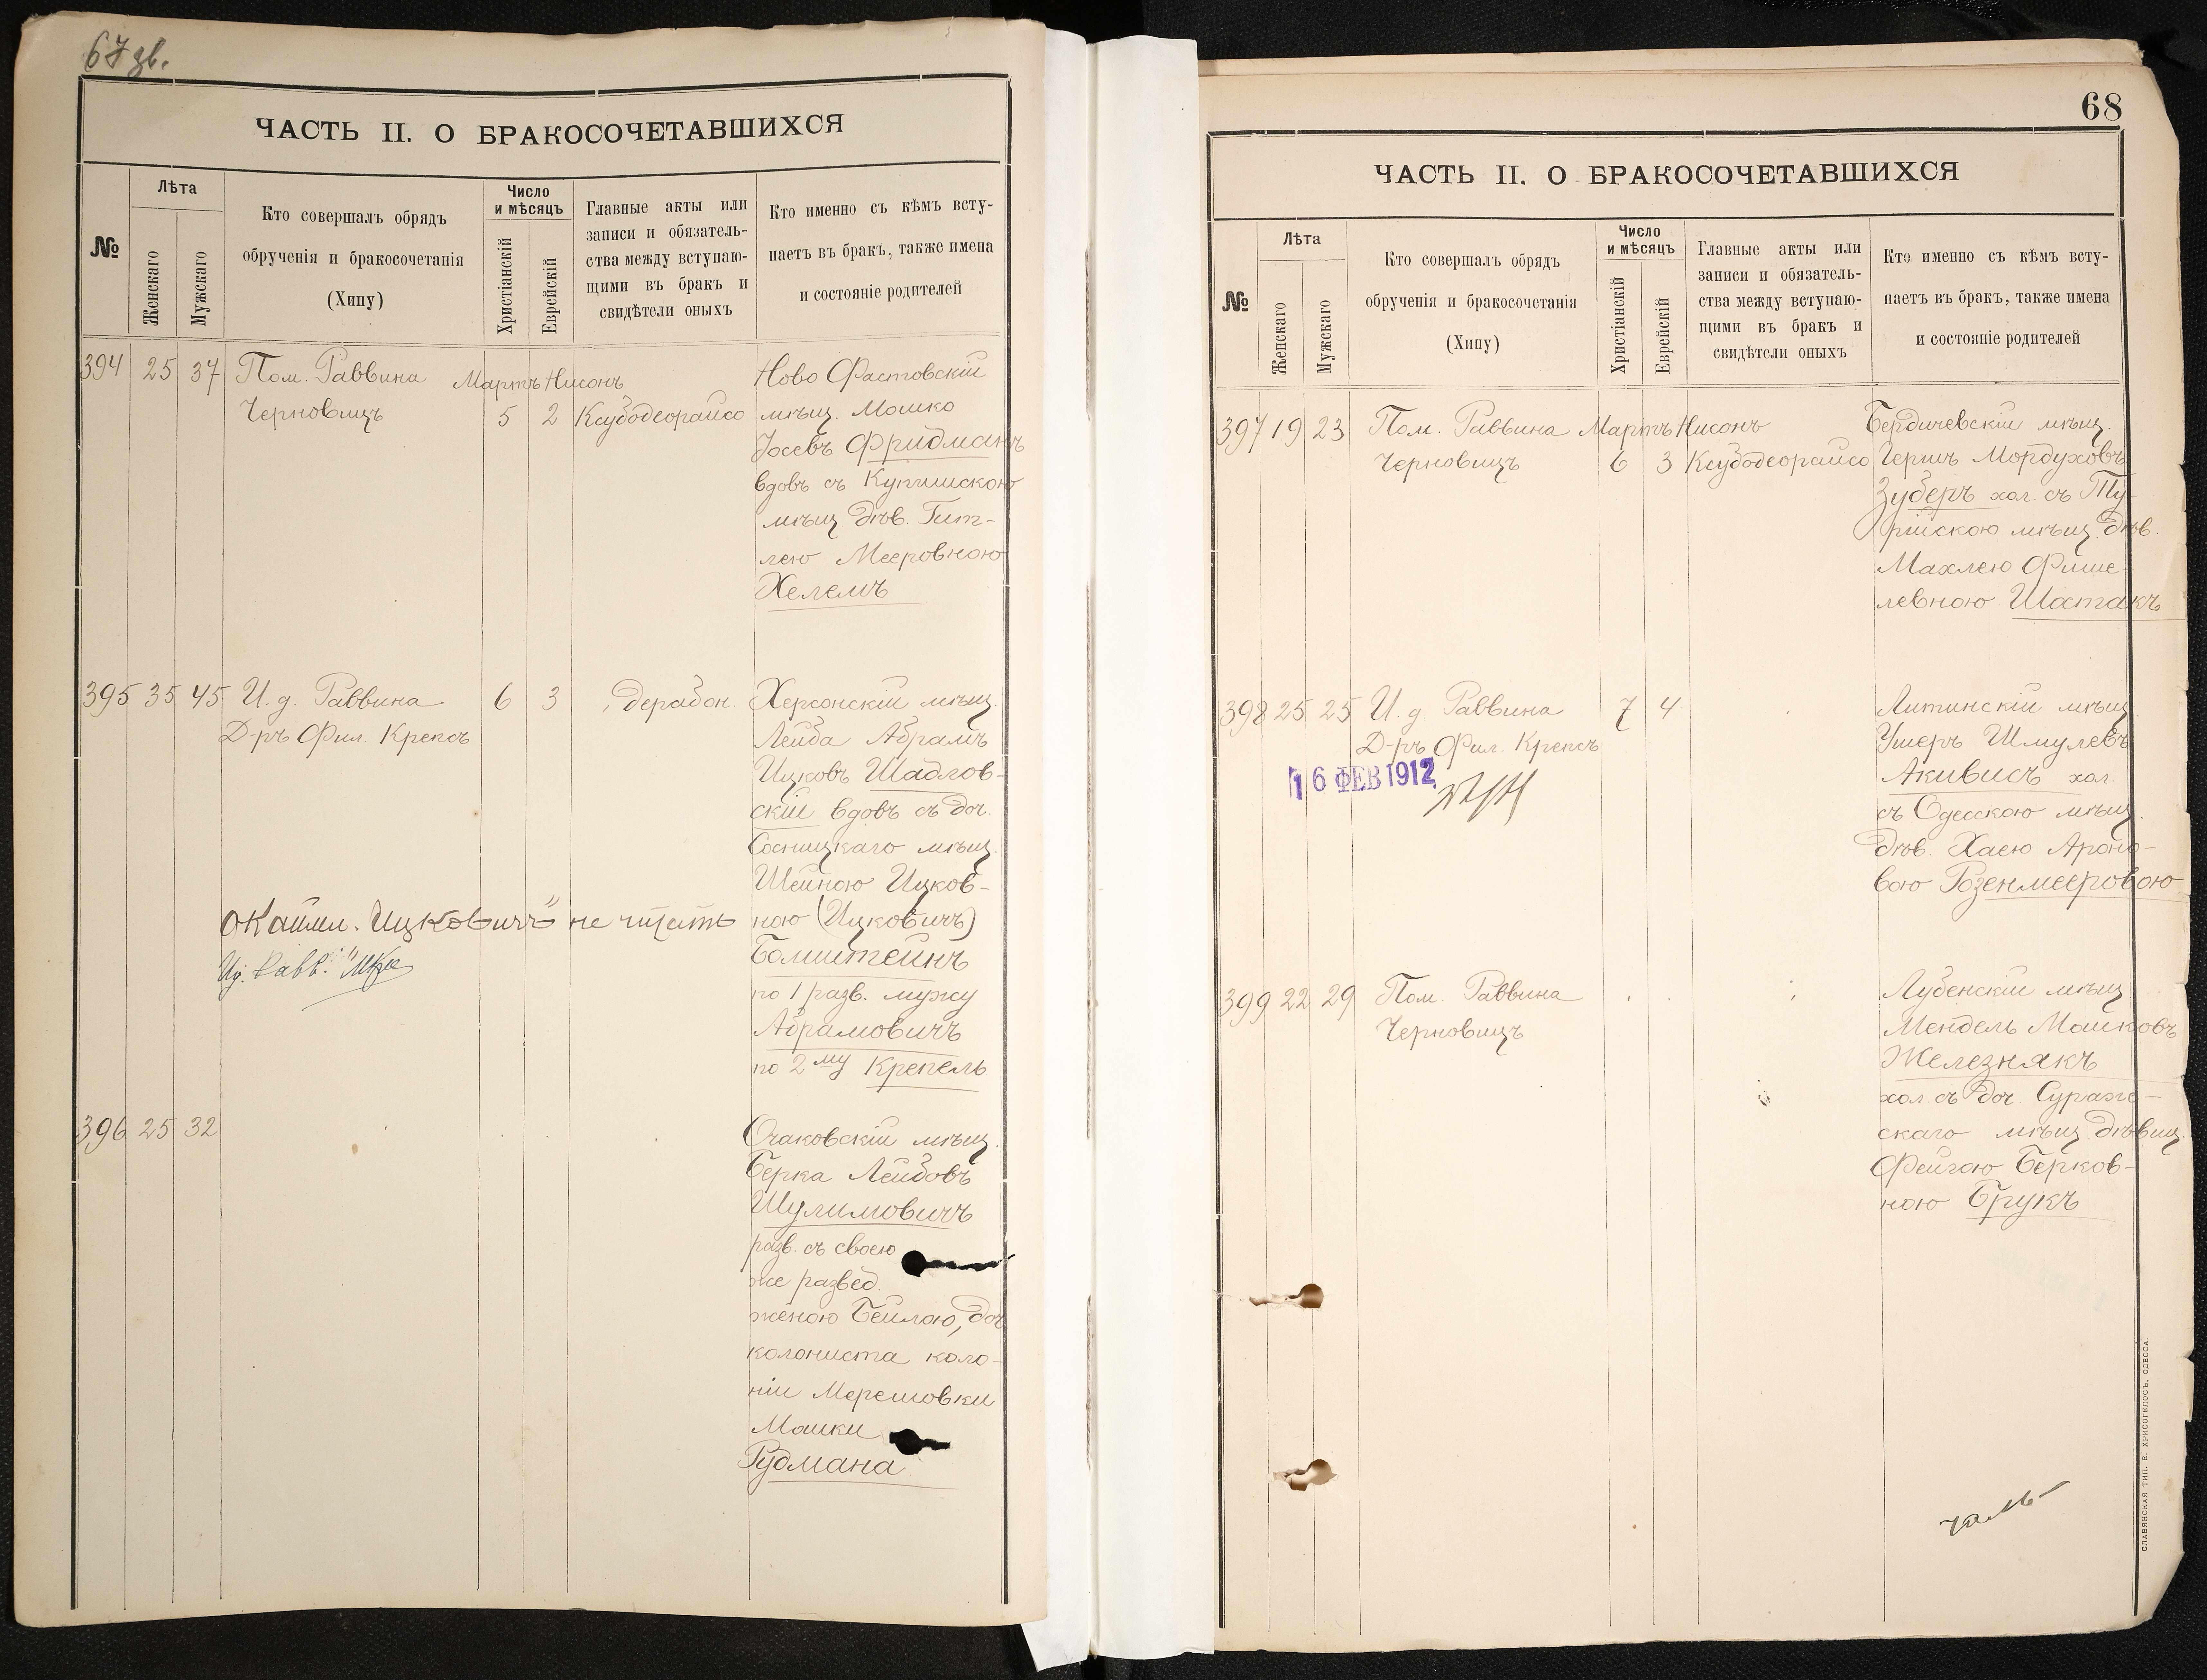 67 зв.
ЧАСТЬ II. О БРАКОСОЧЕТАВШИХСЯ
№
Лѣта
Женскаго
Мужскаго
Кто совершалъ обрядъ
обрученія и бракосочетанія
(Хипу)
Число
и мѣсяцъ
Христіанскій
Еврейскій
Главные акты или
записи и обязатель-
ства между вступаю-
щими въ бракъ и
свидѣтели оныхъ
Кто именно съ кѣмъ всту-
паетъ въ бракъ, также имена
и состояніе родителей
394 25 37 Пом. Раввина Мартъ Нисонъ Ново Фастовскій
Черновицъ 5 2 Ксубодеорайсо мѣщ. Мошко
Іосевъ Фридманъ
вдовъ съ Купишскою
мѣщ. дѣв. Гит-
лею Мееровною
Хелемъ
395 35 45 И. д. Раввина 6 3 " дерабон. Херсонскій мѣщ.
Д-ръ Фил. Крепсъ Лейба Абрамъ
Ицковъ Шадлов-
скій вдовъ съ доч.
Сосницкаго мѣщ.
Шейною Ицков-
ною (Ицковичъ)
Бомштейнъ
по 1 разв. мужу
Абрамовичъ
по 2му Крепель
Ицковичъ" не читать
396 25 32 Очаковскій мѣщ.
Берка Лейбовъ
Шулимовичъ
разв. съ своею
же развед.
женою Бейлою, доч
колониста коло-
ніи Мерешовки
Мошки
Рудмана
68
ЧАСТЬ II. О БРАКОСОЧЕТАВШИХСЯ
№
Лѣта
Женскаго
Мужскаго
Кто совершалъ обрядъ
обрученія и бракосочетанія
(Хипу)
Число
и мѣсяцъ
Христіанскій
Еврейскій
Главные акты или
записи и обязатель-
ства между вступаю-
щими въ бракъ и
свидѣтели оныхъ
Кто именно съ кѣмъ всту-
паетъ въ бракъ, также имена
и состояніе родителей
397 19 23 Пом. Раввина Мартъ Нисонъ Бердичевскій мѣщ.
Черновицъ 6 3 Ксубодеорайсо Гершъ Мордуховъ
Зуберъ хол. съ Ту-
рійскою мѣщ. дѣв.
Махлею Фише-
левною Шостакъ
398 25 25 И. д. Раввина 7 4 Литинскій мѣщ.
Д-ръ Фил. Крепсъ Ушеръ Шмулевъ
Акивисъ хол.
съ Одесскою мѣщ.
дѣв. Хаею Ароно-
вою Розенмееровою
16 ФЕВ 1912
399 22 29 Пом. Раввина Лубенскій мѣщ.
Черновицъ Мендель Мошковъ
Железнякъ
хол. съ доч. Сураж-
скаго мѣщ. дѣвиц.
Фейгою Берков-
ною Брукъ
СЛАВЯНСКАЯ ТИП. Е. ХРИСОГЕЛОСЪ, ОДЕССА.